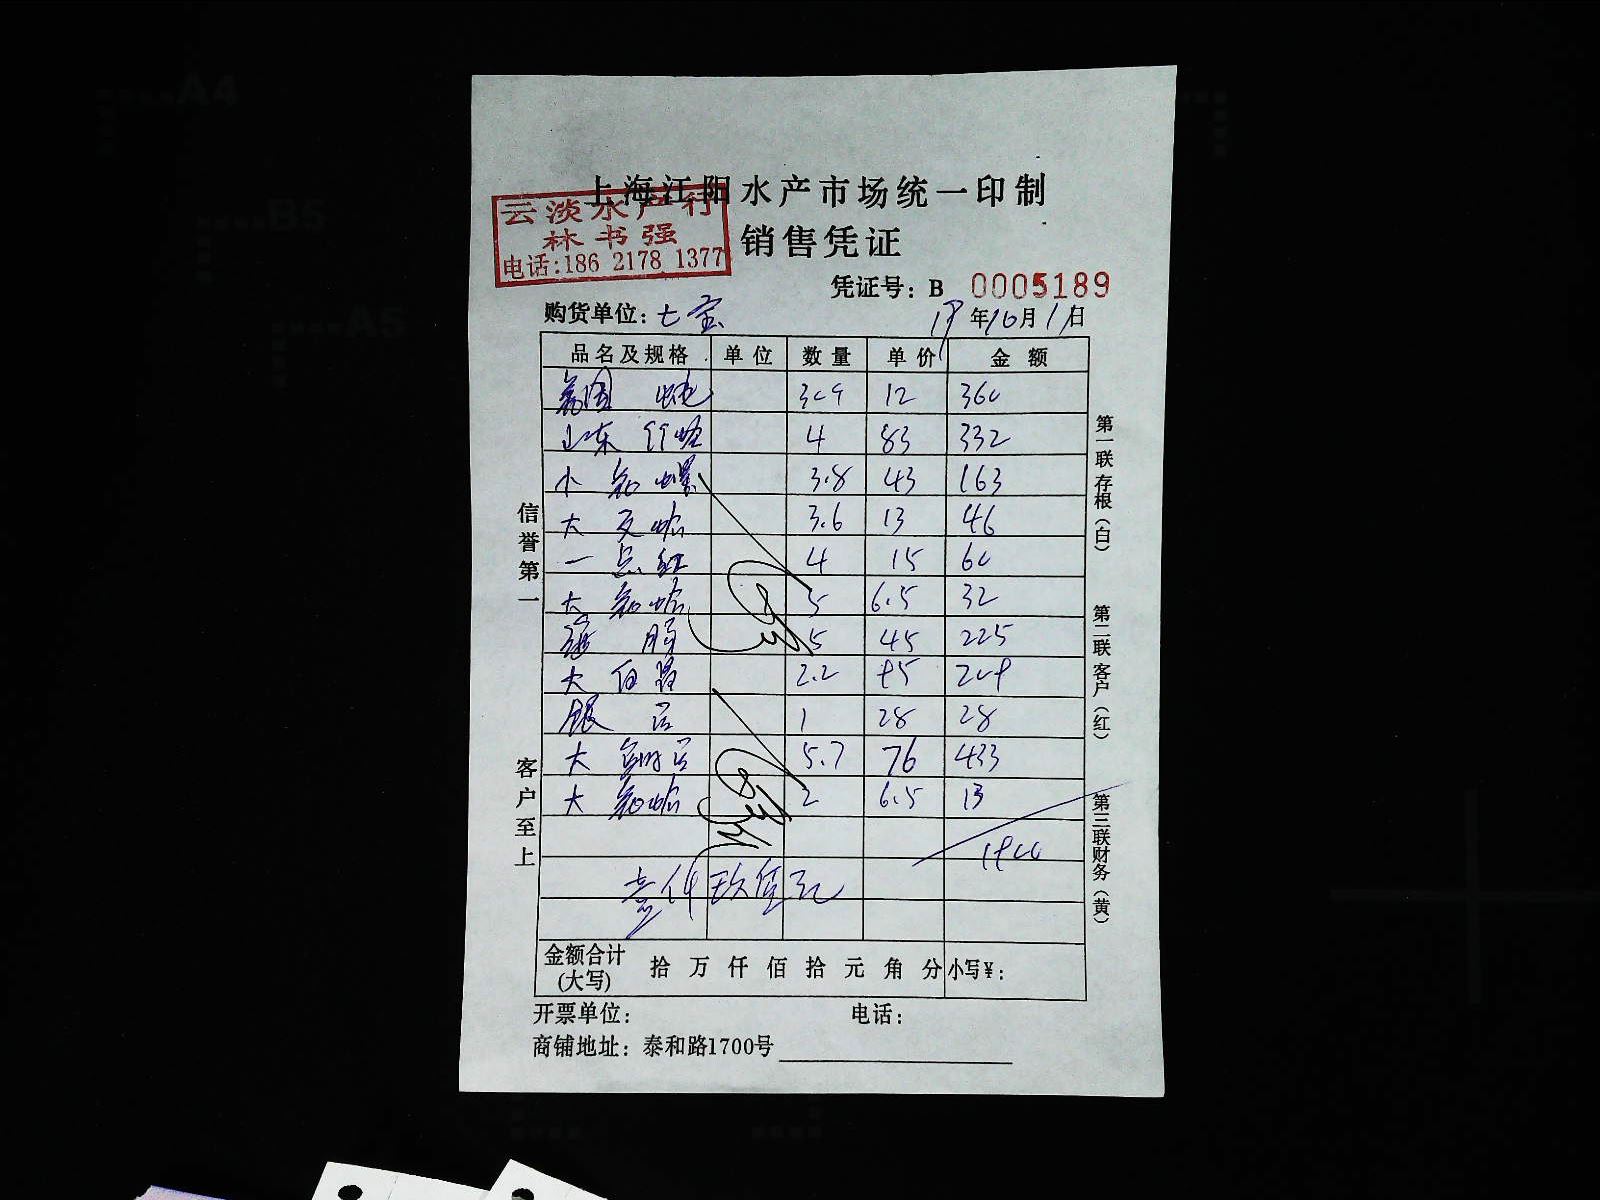 A4
B5
A5
上海江阳水产市场统一印制
云淡水产行
林书强
电话:186 2178 1377
销售凭证
凭证号: B 0005189
购货单位: 七宝 年10月11日
品名及规格 单位 数量 单价 金额
12 360
山东 4 83 332
小 螺 3.8 43 163
大 蛤 3.6 13 46
一点红 4 15 60
大 蛤 5 6.5 32
5 45 225
大 2.2
银 1 28 28
大 5.7 76 433
大 蛤 2 6.5 13
1900
壹仟玖佰元
信誉第一
客户至上
第一联存根(白)
第二联客户(红)
第三联财务(黄)
金额合计(大写) 拾万仟佰拾元角分 小写¥:
开票单位: 电话:
商铺地址: 泰和路1700号